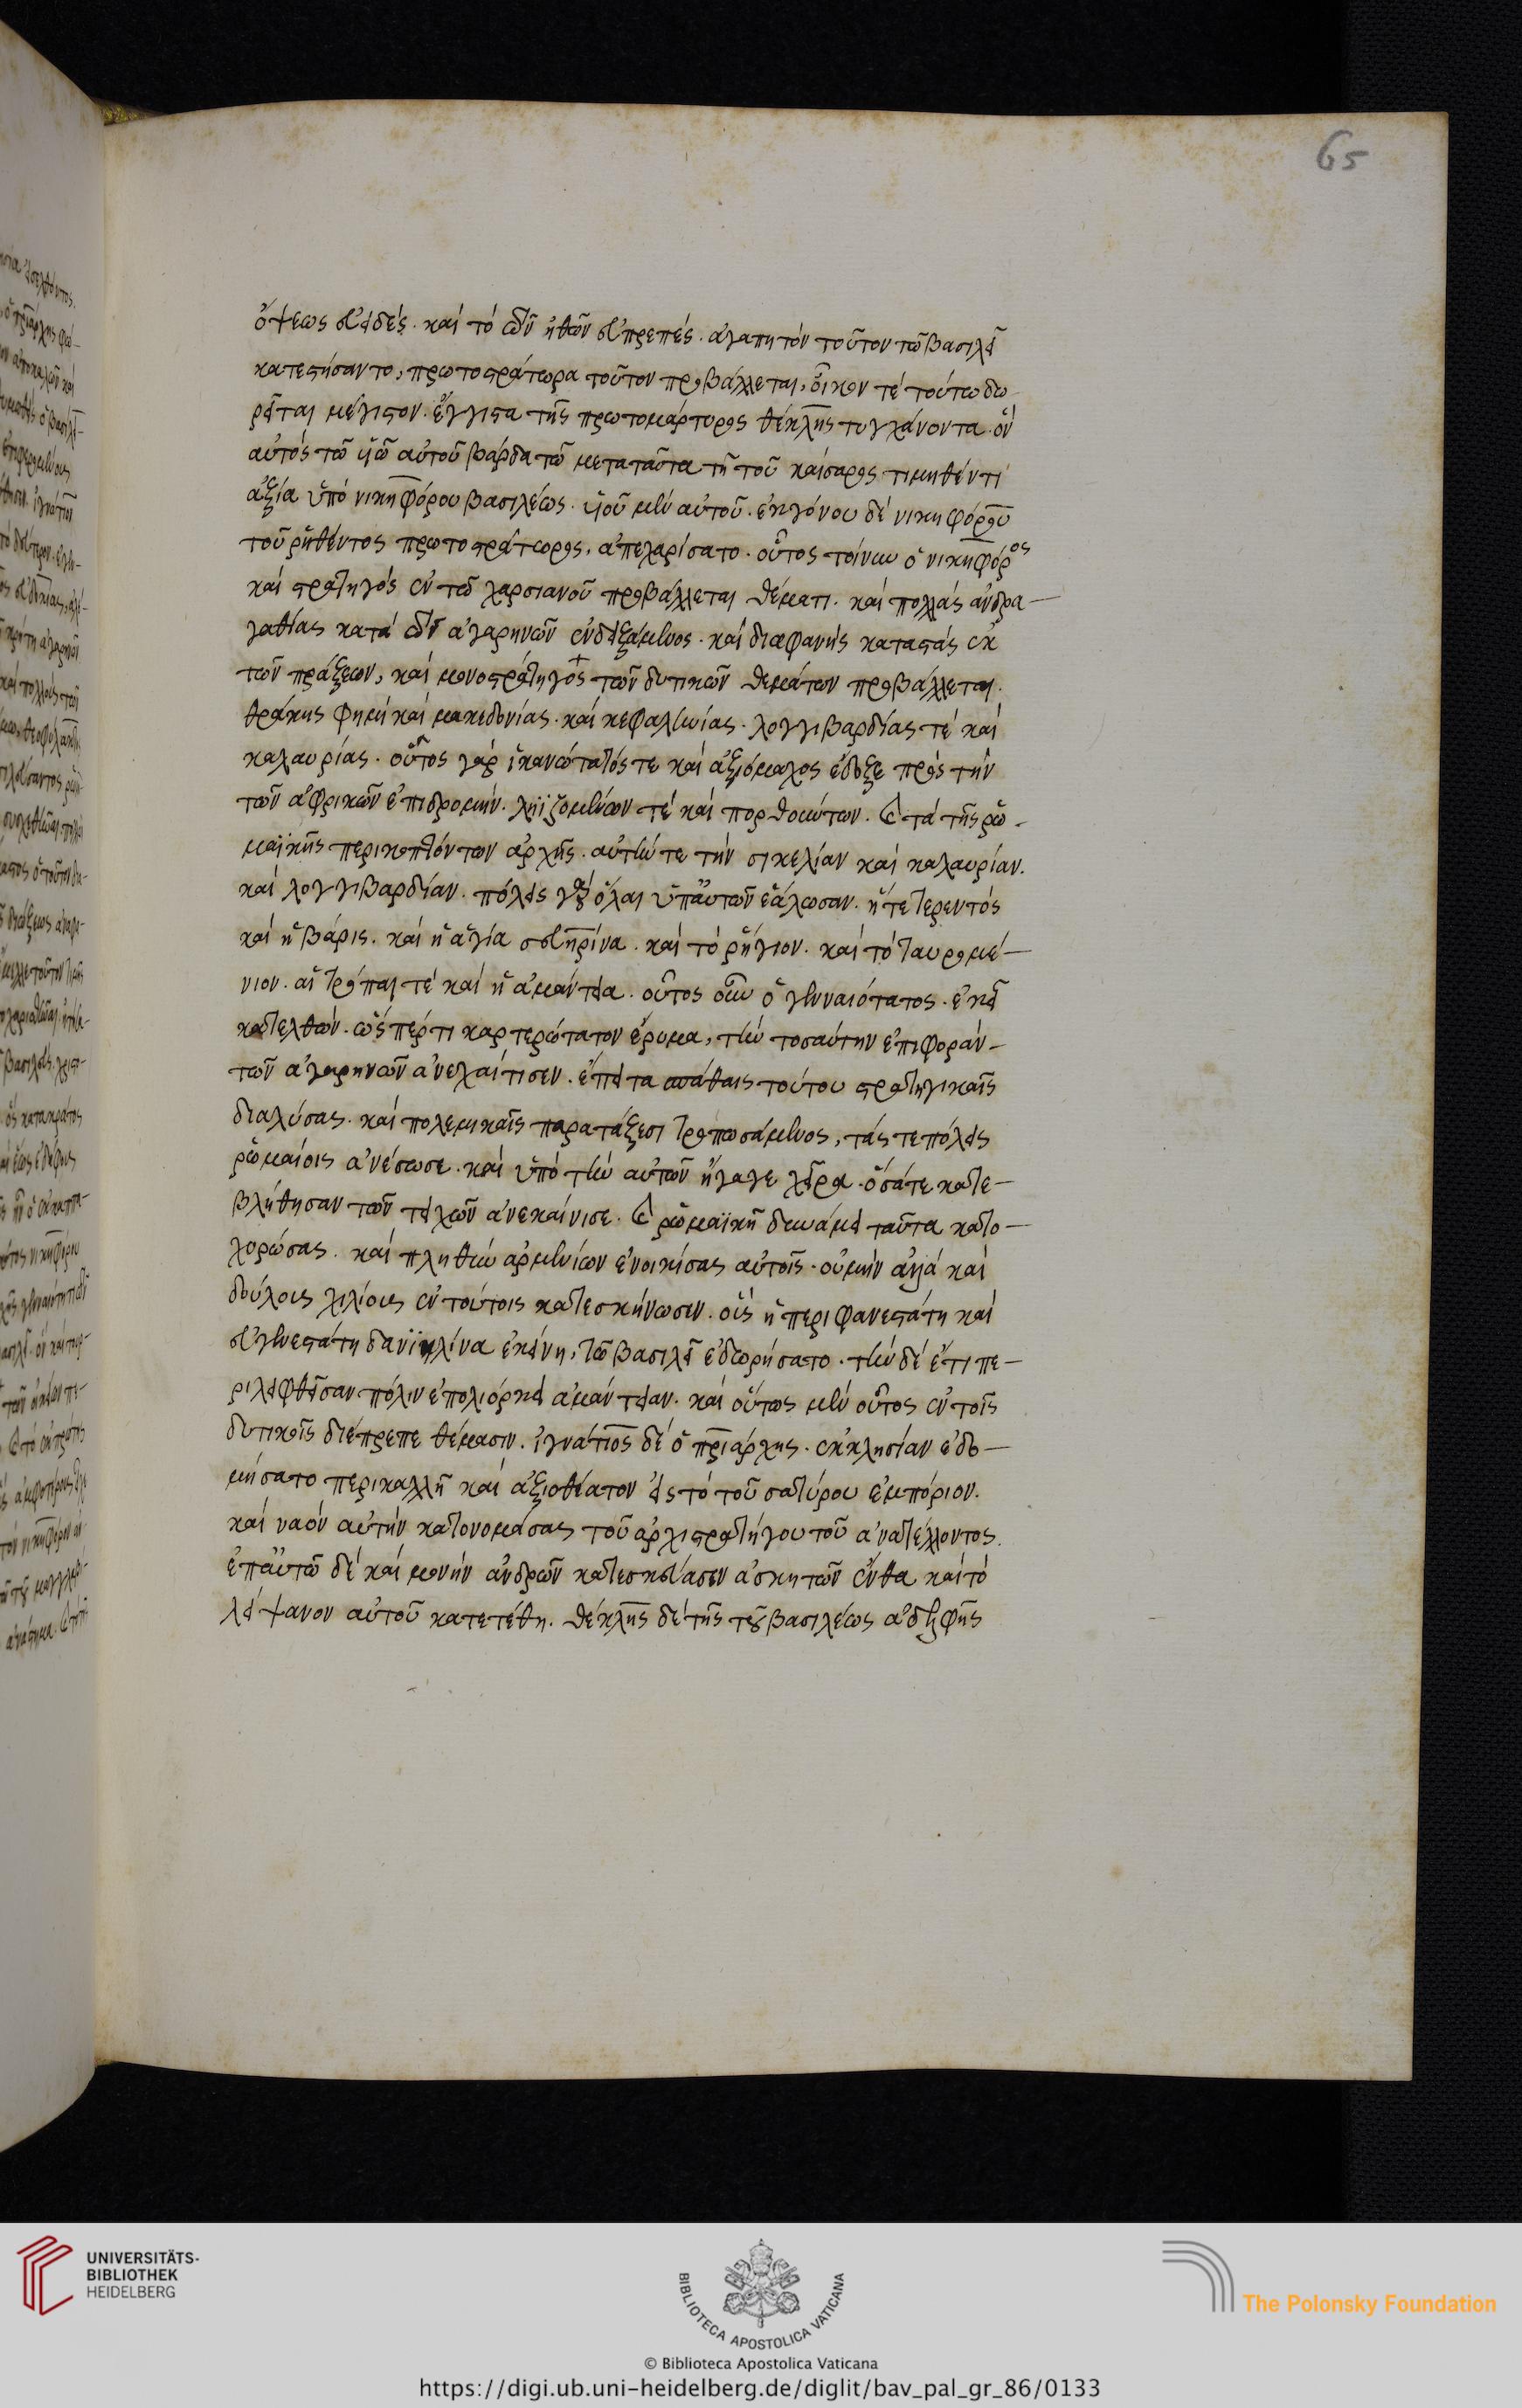 65
ὄψεως εὐειδές. καὶ τὸ τῶν ἠθῶν εὐπρεπές. ἀγαπητὸν τοῦτον τῶ βασιλεῖ
κατεστήσαντο, πρωτοστράτωρα τοῦτον προβάλλεται, οἶκον τὲ τούτω δω-
ρεῖται μέγιστον. ἔγγιστα τῆς πρωτομάρτυρος θέκλης τυγχάνοντα. ὃν
αὐτὸς τῶ υἱῶ αὐτοῦ βάρδα τῶ μεταταῦτα τῆ τοῦ καίσαρος τιμηθέντι
ἀξία ὑπὸ νικηφόρου βασιλέως. υἱοῦ μὲν αὐτοῦ. ἐκγόνου δὲ νικηφόρου
τοῦ ῥηθέντος πρωτοστράτωρος, ἀπεχαρίσατο. οὗτος τοίνυν ὁ νικηφόρος
καὶ στρατηγὸς ἐν τῶ χαρσιανοῦ προβάλλεται θέματι. καὶ πολλὰς ἀνδρα-
γαθίας κατὰ τῶν ἀγαρηνῶν ἐνδειξάμενος. καὶ διαφανὴς καταστὰς ἐκ
τῶν πράξεων, καὶ μονοστράτηγος τῶν δυτικῶν θεμάτων προβάλλεται.
θράκης φημὶ καὶ μακεδονίας. καὶ κεφαληνίας. λογγιβαρδίας τὲ καὶ
καλαυρίας. οὗτος γὰρ ἱκανώτατός τε καὶ ἀξιόμαχος ἔδοξε πρὸς τὴν
τῶν ἀφρικῶν ἐπιδρομὴν. ληϊζομένων τὲ καὶ πορθούντων. καὶ τὰ τῆς ῥω-
μαϊκῆς περικοπτόντων ἀρχῆς. αὐτήν τε τὴν σικελίαν καὶ καλαυρίαν.
καὶ λογγιβαρδίαν. πόλεις γὰρ ὅλαι ὑπαὐτῶν ἑάλωσαν. ἥτε τερεντὸς
καὶ ἡ βάρις. καὶ ἡ ἁγία σευηρίνα. καὶ τὸ ῥήγιον. καὶ τὸ ταυρομέ-
νιον. αἱ τρόπαι τὲ καὶ ἡ ἀμάντεια. οὗτος οὖν ὁ γενναιότατος. ἐκεῖ
κατελθὼν. ὥσπέρ τι καρτερώτατον ἔρυμα, τὴν τοσαύτην ἐπιφορὰν-
τῶν ἀγαρηνῶν ἀνεχαίτισεν. ἔπειτα ἀπάθαις τούτου στρατηγικαῖς
διαλύσας. καὶ πολεμικαῖς παρατάξεσι τροπωσάμενος, τάς τε πόλεις
ῥωμαίοις ἀνέσωσε. καὶ ὑπὸ τὴν αὐτῶν ἤγαγε χεῖρα. ὅσά τε κατε-
βλήθησαν τῶν τειχῶν ἀνεκαίνισε. καὶ ῥωμαϊκῆ δυνάμει ταῦτα κατο-
χορώσας. καὶ πληθὺν ἀρμενίων ἐνοικίσας αὐτοῖς. οὐμὴν ἀλλὰ καὶ
δούλοις χιλίοις ἐν τούτοις κατεσκήνωσεν. οἷς ἡ περιφανεστάτη καὶ
εὐγενεστάτη δανϊηλίνα ἐκείνη, τῶ βασιλεῖ ἐδωρήσατο. τὴν δὲ ἔτι πε-
ριλειφθεῖσαν πόλιν ἐπολιόρκει ἀμάντειαν. καὶ οὕτως μὲν οὗτος ἐν τοῖς
δυτικοῖς διέπρεπε θέμασιν. ἰγνάτιος δὲ ὁ πριάρχης. ἐκκλησίαν ἐδο-
μήσατο περικαλλῆ καὶ ἀξιοθέατον εἰς τὸ τοῦ σατύρου ἐμπόριον.
καὶ ναὸν αὐτὴν κατονομάσας τοῦ ἀρχιστρατήγου τοῦ ἀνατέλλοντος.
ἐπαὐτῶ δὲ καὶ μονὴν ἀνδρῶν κατεσκεύασεν ἀσκητῶν ἔνθα καὶ τὸ
λείψανον αὐτοῦ κατετέθη. θέκλης δὲ τῆς τοῦ βασιλέως ἀδελφῆς
UNIVERSITÄTS-
BIBLIOTHEK
HEIDELBERG
BIBLIOTECA APOSTOLICA VATICANA
The Polonsky Foundation
© Biblioteca Apostolica Vaticana
https://digi.ub.uni-heidelberg.de/diglit/bav_pal_gr_86/0133